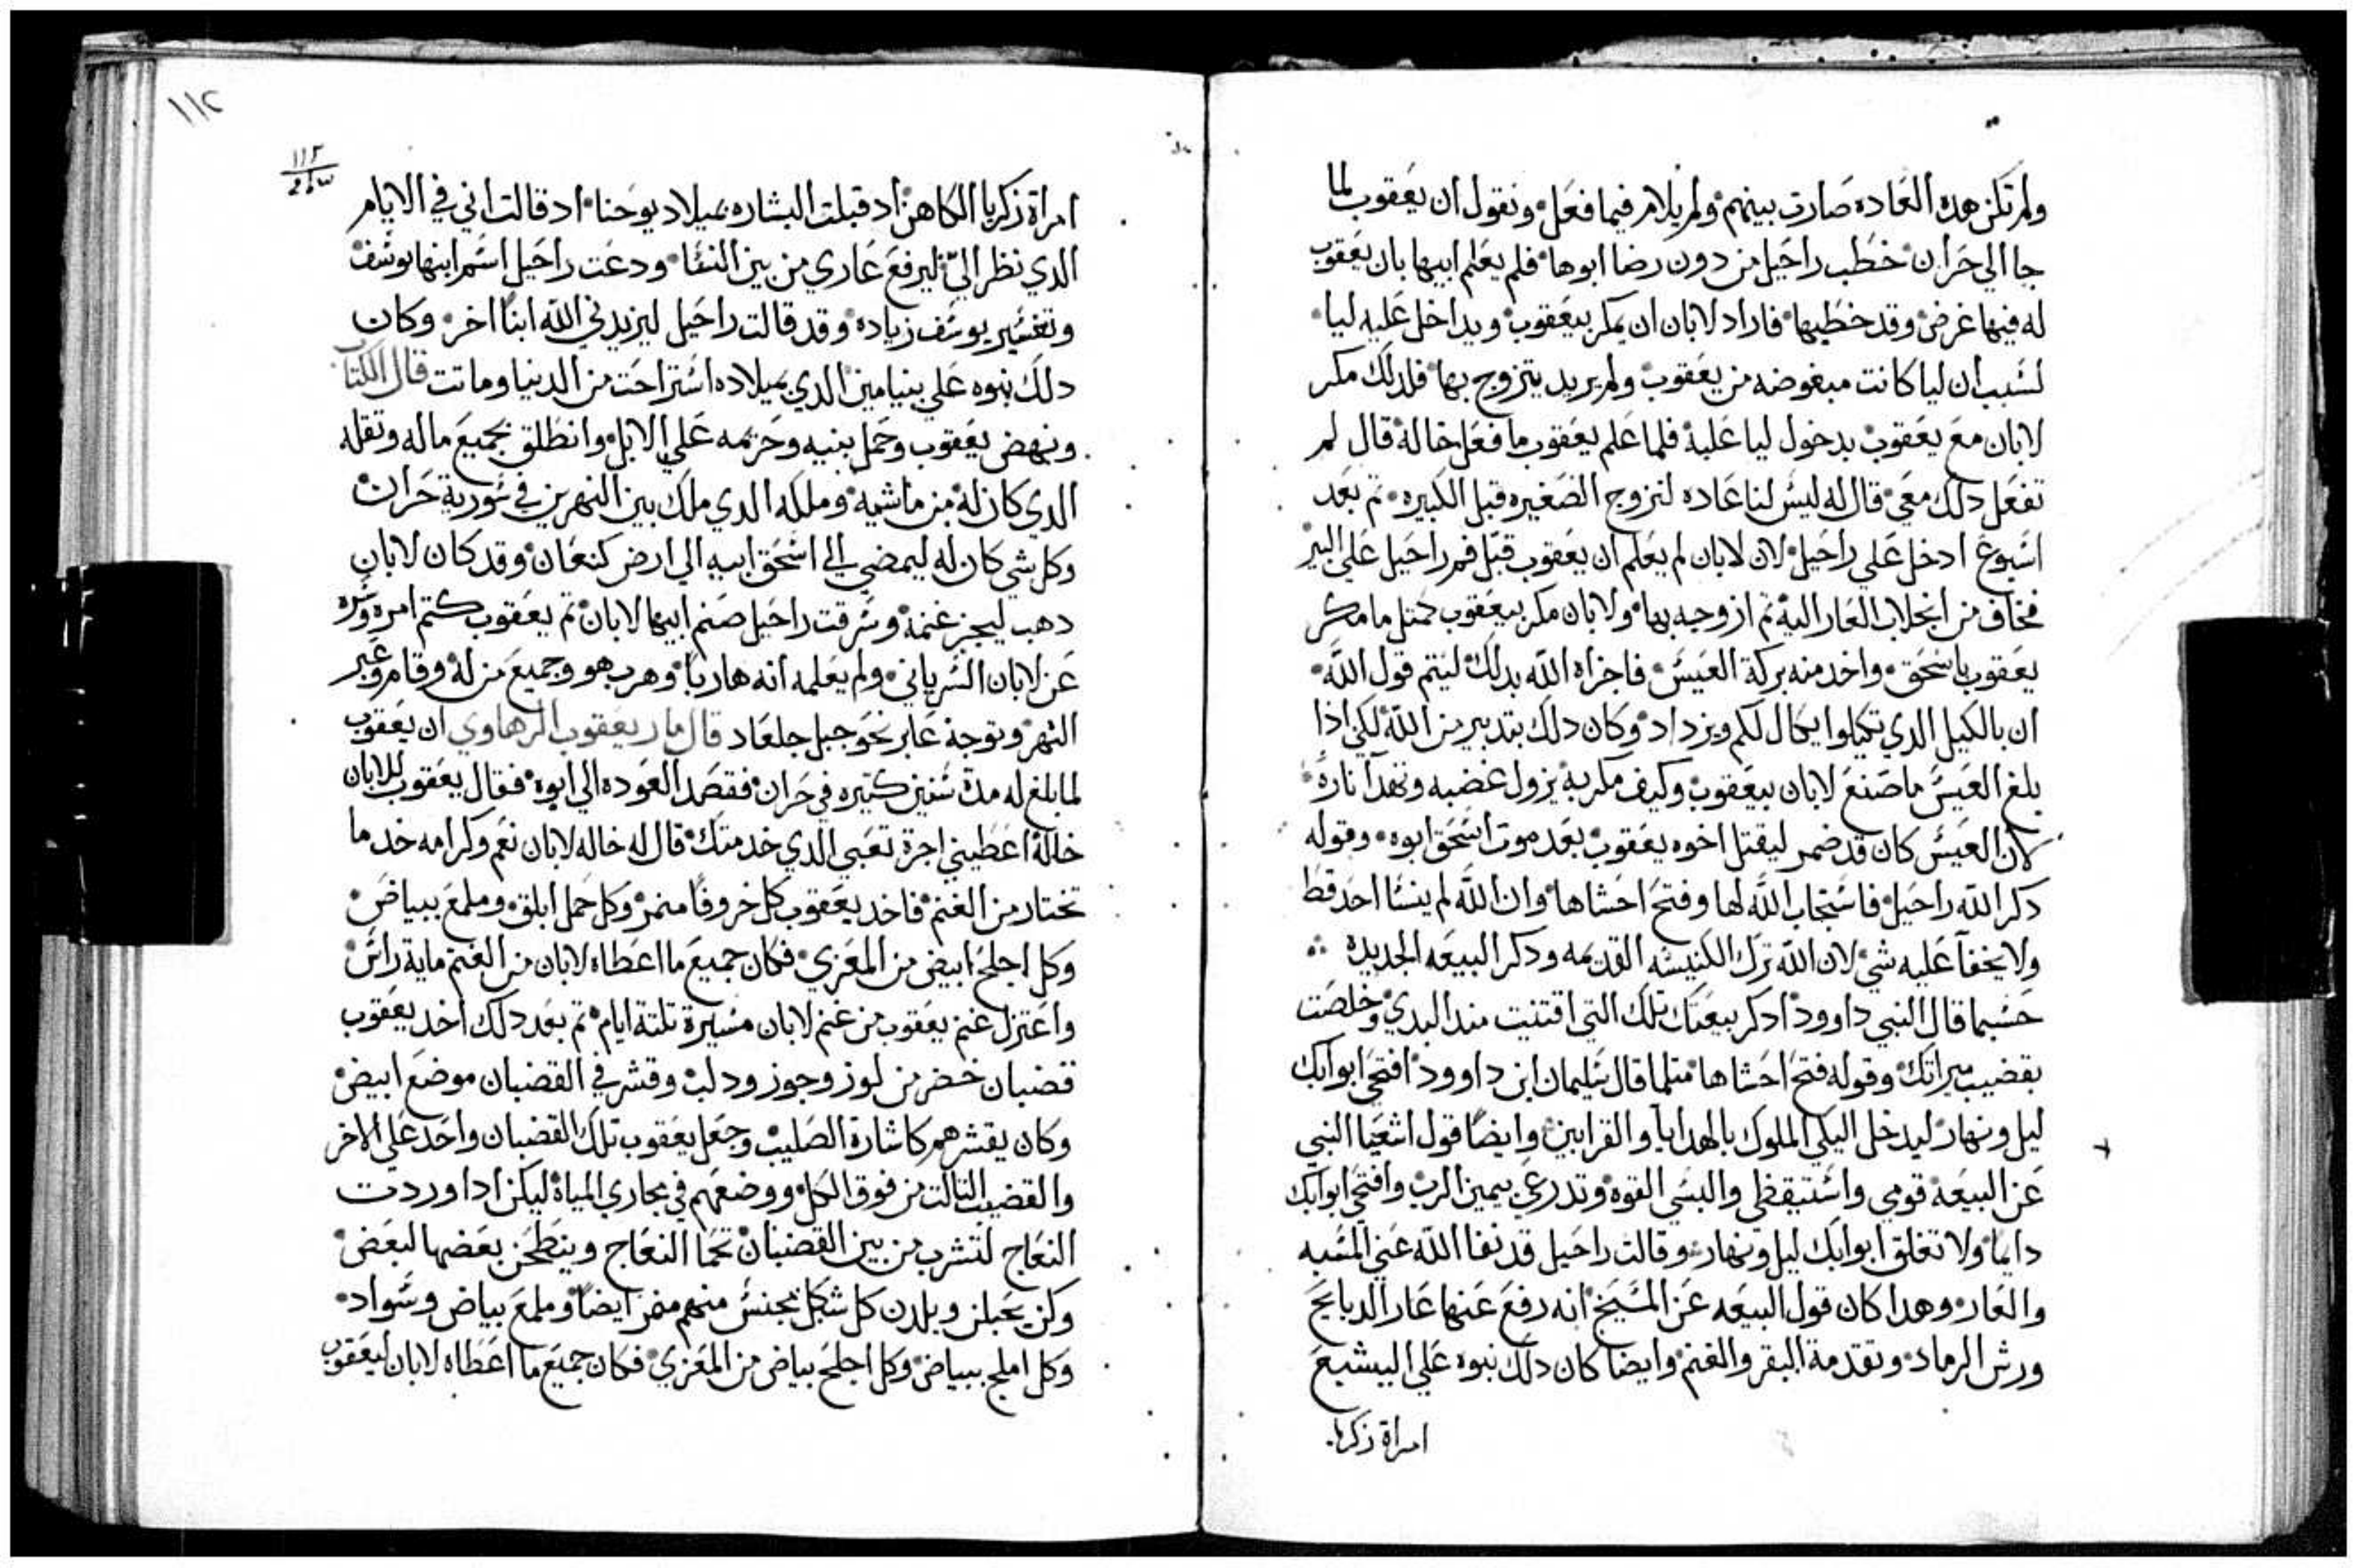 ولم تكن هده العاده صارت بينهم ولم يلام فيما فعل ونقول ان يعقوب لما
جا الي حران خطب راحيل من دون رضا ابوها فلم يعلم ابيها بان يعقوب
له فيها غرض وقد خطبها فاراد لابان ان يمكر بيعقوب ويداخل عليه ليا
لسبب ان ليا كانت مبغوضه من يعقوب ولم يريد يتزوج بها فلدلك مكر
لابان مع يعقوب بدخول ليا عليه فلما علم يعقوب ما فعل خاله قال لم
تفعل دلك معي قال له ليس لنا عاده لنزوج الصغيره قبل الكبيره تم بعد
اسبوع ادخل علي راحيل لان لابان لم يعلم ان يعقوب قبل فم راحيل علي البير
فخاف من انجلاب العار اليه تم ازوجه بها ولابان مكر بيعقوب كمتل ما مكر
يعقوب باسحق واخد منه بركة العيس فاجزاه الله بدلك ليتم قول الله
ان بالكيل الدي تكيلوا يكال لكم ويزداد وكان دلك بتدبير من الله لكي اذا
بلغ العيس ما صنع لابان بيعقوب وكيف مكر به يزول غضبه وتهدا ناره
لان العيس كان قد ضمر ليقتل اخوه يعقوب بعد موت اسحق ابوه وقوله
دكر الله راحيل فاستجاب الله لها وفتح احشاها وان الله لم ينسا احد قط
ولا يخفا عليه شي لان الله ترك الكنيسه القديمه ودكر البيعه الجديده
حسبما قال النبي داوود ادكر بيعتك تلك التي اقتنيت مند البدي وخلصت
بقضيب ميراتك وقوله فتح احشاها متلما قال سليمان ابن داوود افتحي ابوابك
ليل ونهار ليدخل اليكي الملوك بالهدايا والقرابين وايضا قول اشعيا النبي
عن البيعه قومي واستيقظي والبسي القوه وتدرعي بيمين الرب وافتحي ابوابك
دايما ولا تغلق ابوابك ليل ونهار وقالت راحيل قد نفا الله عني المسبه
والعار وهدا كان قول البيعه عن المسيح انه رفع عنها عار الدبايح
ورش الرماد وتقدمة البقر والغنم وايضا كان دلك نبوه علي اليشبع
امراة زكريا
١١٢
١١٢
امراة زكريا الكاهن اد قبلت البشاره بميلاد يوحنا اد قالت اني في الايام
الدي نظر الي ليرفع عاري من بين النسا ودعت راحيل اسم ابنها يوسف
وتفسير يوسف زياده وقد قالت راحيل ليزيدني الله ابنا اخر وكان
دلك نبوه علي بنيامين الدي بميلاده استراحت من الدنيا وماتت قال الكتاب
ونهض يعقوب وحمل بنيه وحريمه علي الابل وانطلق بجميع ماله وتقله
الدي كان له من ماشيه وملكه الدي ملك بين النهرين في سورية حران
وكل شي كان له ليمضي الي اسحق ابيه الي ارض كنعان وقد كان لابان
دهب ليجز غنمه وسرقت راحيل صنم ابيها لابان تم يعقوب كتم امره وسره
عن لابان السرياني ولم يعلمه انه هاربا وهرب هو وجميع من له وقام وعبر
النهر وتوجه عابر نحو جبل جلعاد قال مار يعقوب الرهاوي ان يعقوب
لما بلغ له مدة سنين كتيره في حران فقصد العوده الي ابوه فقال يعقوب للابان
خاله اعطيني اجرة تعبي الدي خدمتك قال له خاله لابان نعم وكرامه خد ما
تختار من الغنم فاخد يعقوب كل خروفا منمر وكل حمل ابلق وملمع ببياض
وكل اجلح ابيض من المعزي فكان جميع ما اعطاه لابان من الغنم ماية راس
واعتزل غنم يعقوب من غنم لابان مسيرة تلتة ايام تم بعد دلك اخد يعقوب
قضبان خضر من لوز وجوز ودلب وقشر في القضبان موضع ابيض
وكان يقشرهم كاشارة الصليب وجعل يعقوب تلك القضبان واحد علي الاخر
والقضيب التالت من فوق الكل ووضعهم في مجاري المياه ليكن ادا وردت
النعاج لتشرب من بين القضبان تحما النعاج وينطحن بعضها لبعض
وكن يحبلن ويلدن كل شكل بجنس منهم منمر ايضا وملمع بياض وسواد
وكل املح ببياض وكل اجلح بياض من المعزي فكان جميع ما اعطاه لابان ليعقوب